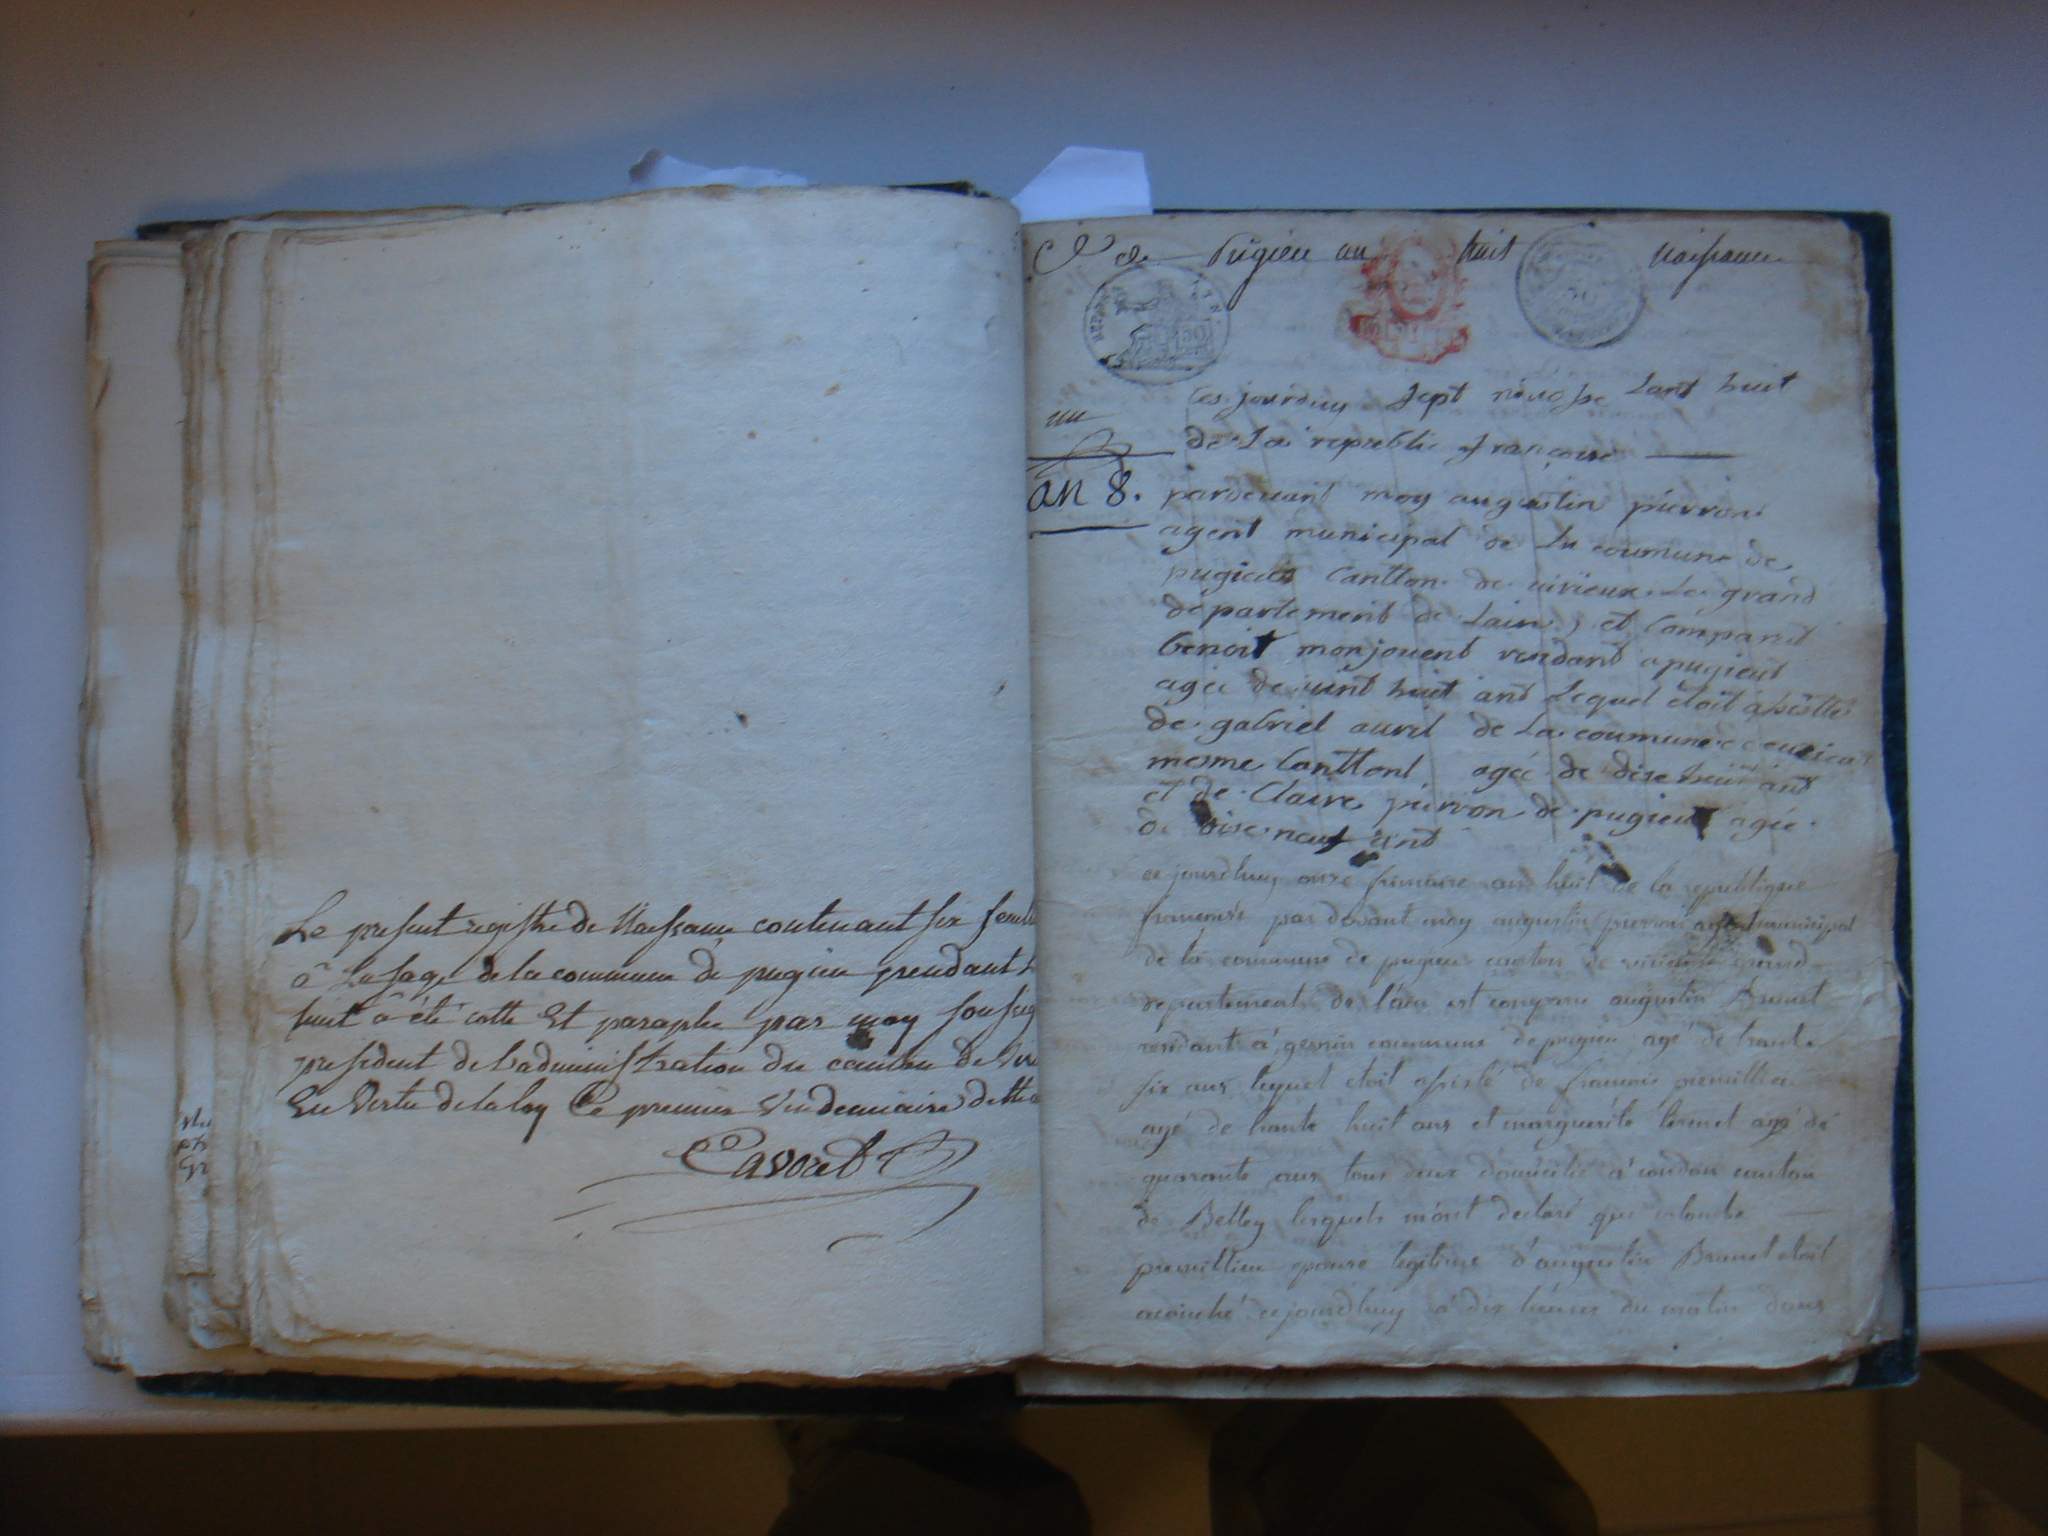 Le present registre de Naissance contenant six feuil
à Lusage de la commune de pugieu pendant L
huit à été cotté Et paraphé par moy soussig
president de l'administration du canton de Vir
En Vertu de la loy Ce premier Vendemiaire dette
Cavoret
Cne de Pugieu an huit naissance
un
an 8.
Ces jourduy sept nivosse Lant huit
de La republic françoise
pardevant moy augustin pierron
agent municipal de La coumune de
pugieu Cantton de virieux Le grand
département de Lain, et Comparut
Benoit monjouent rendant a pugieut
agée de vint huit ant Lequel étoit asistté
de gabriel avril de La coumune
mesme Canttont agée de dise huit ant
et de Claire pierron de pugieut agée
de dise neuf ant
ce jourdhuy onze frimaire an huit de la republique
francoise par devant moy augustin pierron agent municipal
de la commune de pugieu canton de virieu le grand
departement de l'ain est comparu augustin Brunet
residant à commune de pugieu agé de trante
six ans lequel etoit assisté de francois premillieu
agé de trante huit ans et marguerite brunet agé de
quarante ans tous deux domicilié à condon canton
de Belley lesquels m'ont declaré que
premillieu epouse legitime d'augustin Brunet etoit
acouché cejourdhuy à dix heures du matin dans